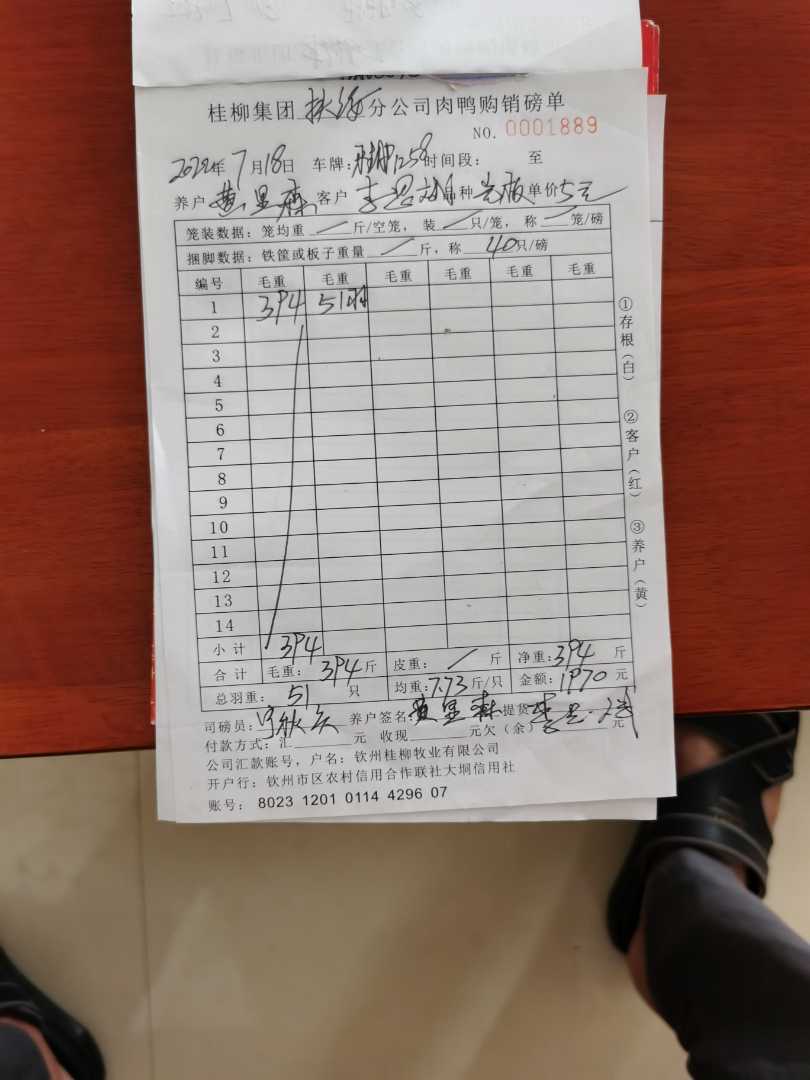 桂柳集团 分公司肉鸭购销磅单
NO. 0001889
2022年7月18日 车牌: 1258 时间段: 至
养户 黄显森 客户 李 种 单价5元
笼装数据: 笼均重 / 斤/空笼, 装 / 只/笼, 称 / 笼/磅
捆脚数据: 铁筐或板子重量 / 斤, 称 40只/磅
编号 毛重 毛重 毛重 毛重 毛重 毛重
1 394 51羽
2
3
4
5
6
7
8
9
10
11
12
13
14
小计 394
合计 毛重: 394斤 皮重: / 斤 净重: 394 斤
总羽重: 51 只 均重: 7.73斤/只 金额: 1970元
司磅员: 养户签名 黄显森 提货 李
付款方式: 汇 元 收现 元欠(余) 元
公司汇款账号, 户名: 钦州桂柳牧业有限公司
开户行: 钦州市区农村信用合作联社大垌信用社
账号: 8023 1201 0114 4296 07
①存根(白)
②客户(红)
③养户(黄)